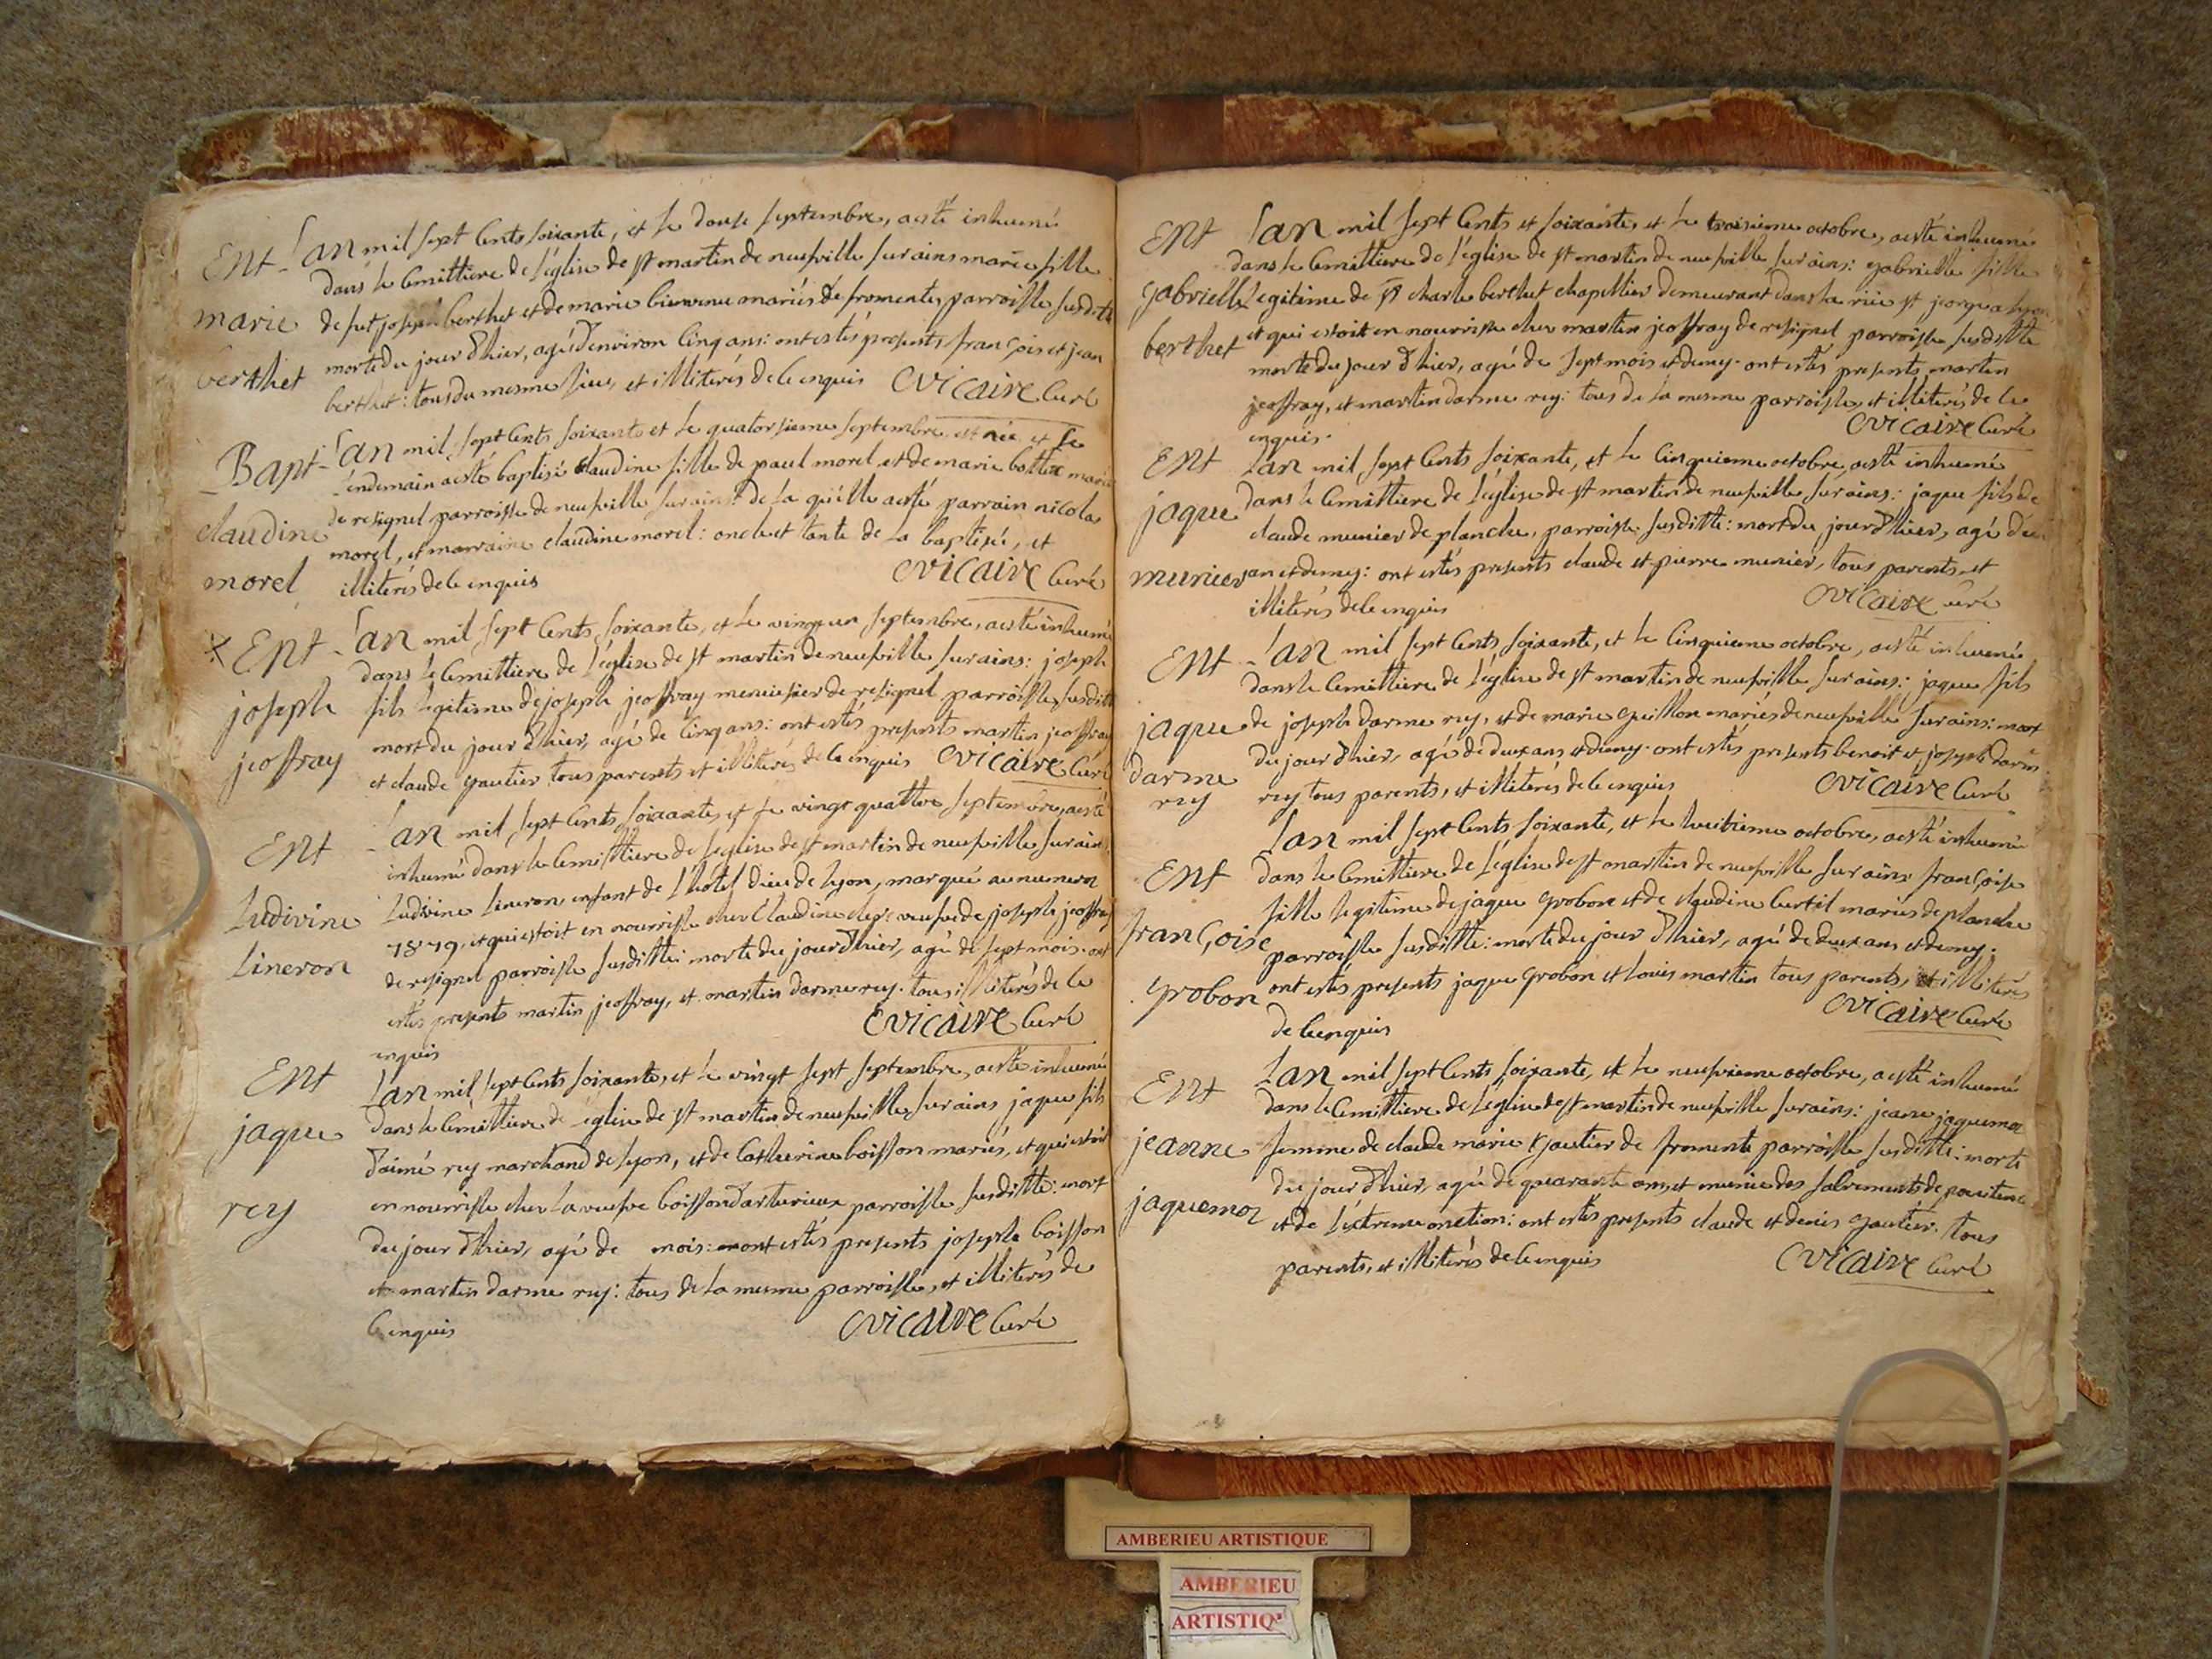 Ent - Lan mil sept Cents soixante, et le douse septembre, aesté inhumé
dans le Cemittiere de l'église de st martin de neufville sur ains marie fille
marie de fut joseph berthet et de marie bienvenu mariés de fromentes parroisse susditte
morte du jour d'hier, agé d'environ Cinq ans: ont estés presents françois et jean
berthet
berthet: tous du mesme lieu, et illiterés de le enquis Ovicaire Curé
Bapt - Lan mil sept Cents soixante et le quatorsieme septembre est née et le
lendemain aesté baptisé Claudine fille de paul morel et de marie bottex mariés
de resignel parroisse de neufville sur ains: de la quille aesté parrain nicolas
claudine
morel, et marraine claudine morel: oncle et tante de la baptisée, et
morel illiterés de le enquis Ovicaire Curé
Ent - Lan mil sept Cents soixante, et le vingt un septembre, aesté inhumé
dans le Cemittiere de l'église de st martin de neufville sur ains: joseph
joseph fils legitime de joseph jeoffray menuisier de resignel parroisse susditte
mort du jour d'hier, agé de Cinq ans: ont estés presents martin jeoffray
jeoffray et claude gautier tous parents et illiterés de le enquis Ovicaire Curé
Ent - Lan mil sept Cents soixante, et le vingt quattre septembre, aesté
inhumé dans le Cemittiere de l'église de st martin de neufville sur ains
Ludivine Ludivine Lineron, enfant de l'hôtel dieu de lyon, marqué au numero
7879, et qui estoit en nourrisse cher Claudine veufve de joseph jeoffray
Lineron de resignel parroisse susditte: morte du jour d'hier, agé de sept mois: ont
estés presents martin jeoffray, et martin darme rey. tous illiterés de le
enquis Ovicaire Curé
Ent Lan mil sept Cents soixante, et le vingt sept septembre, aesté inhumé
jaque dans le Cemittiere de église de st martin de neufville sur ains jaque fils
d'aimé rey marchand de lyon, et de Catherine boisson mariés, et qui estoit
rey en nourrisse cher la veufve boisson d'arturieux parroisse susditte: mort
du jour d'hier, agé de mois: ont estés presents joseph boisson
et martin darme rey: tous de la mesme parroisse, et illiterés de
le enquis Ovicaire Curé
Ent Lan mil sept Cents et soixante, et le troisieme octobre, aesté inhumé
dans le Cemittiere de l'église de st martin de neufville sur ains: gabrielle fille
gabrielle legitime de sr charle berthet chapellier demeurant dans la rüe st jorge a lyon
et qui estoit en nourrisse cher martin jeoffray de resignel parroisse susditte
berthet morte du jour d'hier, agé de sept mois et demy. ont estés presents martin
jeoffray, et martin darme rey: tous de la mesme parroisse, et illiterés de le
enquis. Ovicaire Curé
Ent Lan mil sept Cents soixante, et le Cinquieme octobre, aesté inhumé
jaque dans le Cemittiere de l'église de st martin de neufville sur ains: jaque fils de
claude munier de planche, parroisse susditte: mort du jour d'hier, agé d'un
munier an et demy: ont estés presents claude et pierre munier, tous parents, et
illiterés de le enquis Ovicaire Curé
Ent - Lan mil sept Cents soixante, et le Cinquieme octobre, aesté inhumé
dans le Cemittiere de l'église de st martin de neufville sur ains: jaque fils
jaque de joseph darme rey, et de marie guillon mariés de neufville sur ains: mort
du jour d'hier, agé de deux ans et demy. ont estés presents benoit et joseph darme
darme
rey rey tous parents, et illiterés de le enquis Ovicaire Curé
Lan mil sept Cents soixante, et le huitieme octobre, aesté inhumé
Ent dans le Cemittiere de l'église de st martin de neufville sur ains françoise
fille legitime de jaque grobon et de claudine Curtil mariés de planche
françoise parroisse susditte: morte du jour d'hier, agé de deux ans et demy:
grobon ont estés presents jaque grobon et louis martin tous parents, et illiterés
de le enquis Ovicaire Curé
Ent Lan mil sept Cents soixante, et le neufvieme octobre, aesté inhumé
dans le Cemittiere de l'église de st martin de neufville sur ains: jeane jaquemoz
jeanne femme de claude marie gautier de fromente parroisse susditte: morte
du jour d'hier, agé de quarante ans, et munie des sacrements de penitence
jaquemoz et de l'extreme onction: ont estés presents claude et denis gautier. tous
parents, et illiterés de le enquis Ovicaire Curé
AMBERIEU ARTISTIQUE
AMBERIEU
ARTISTIQ